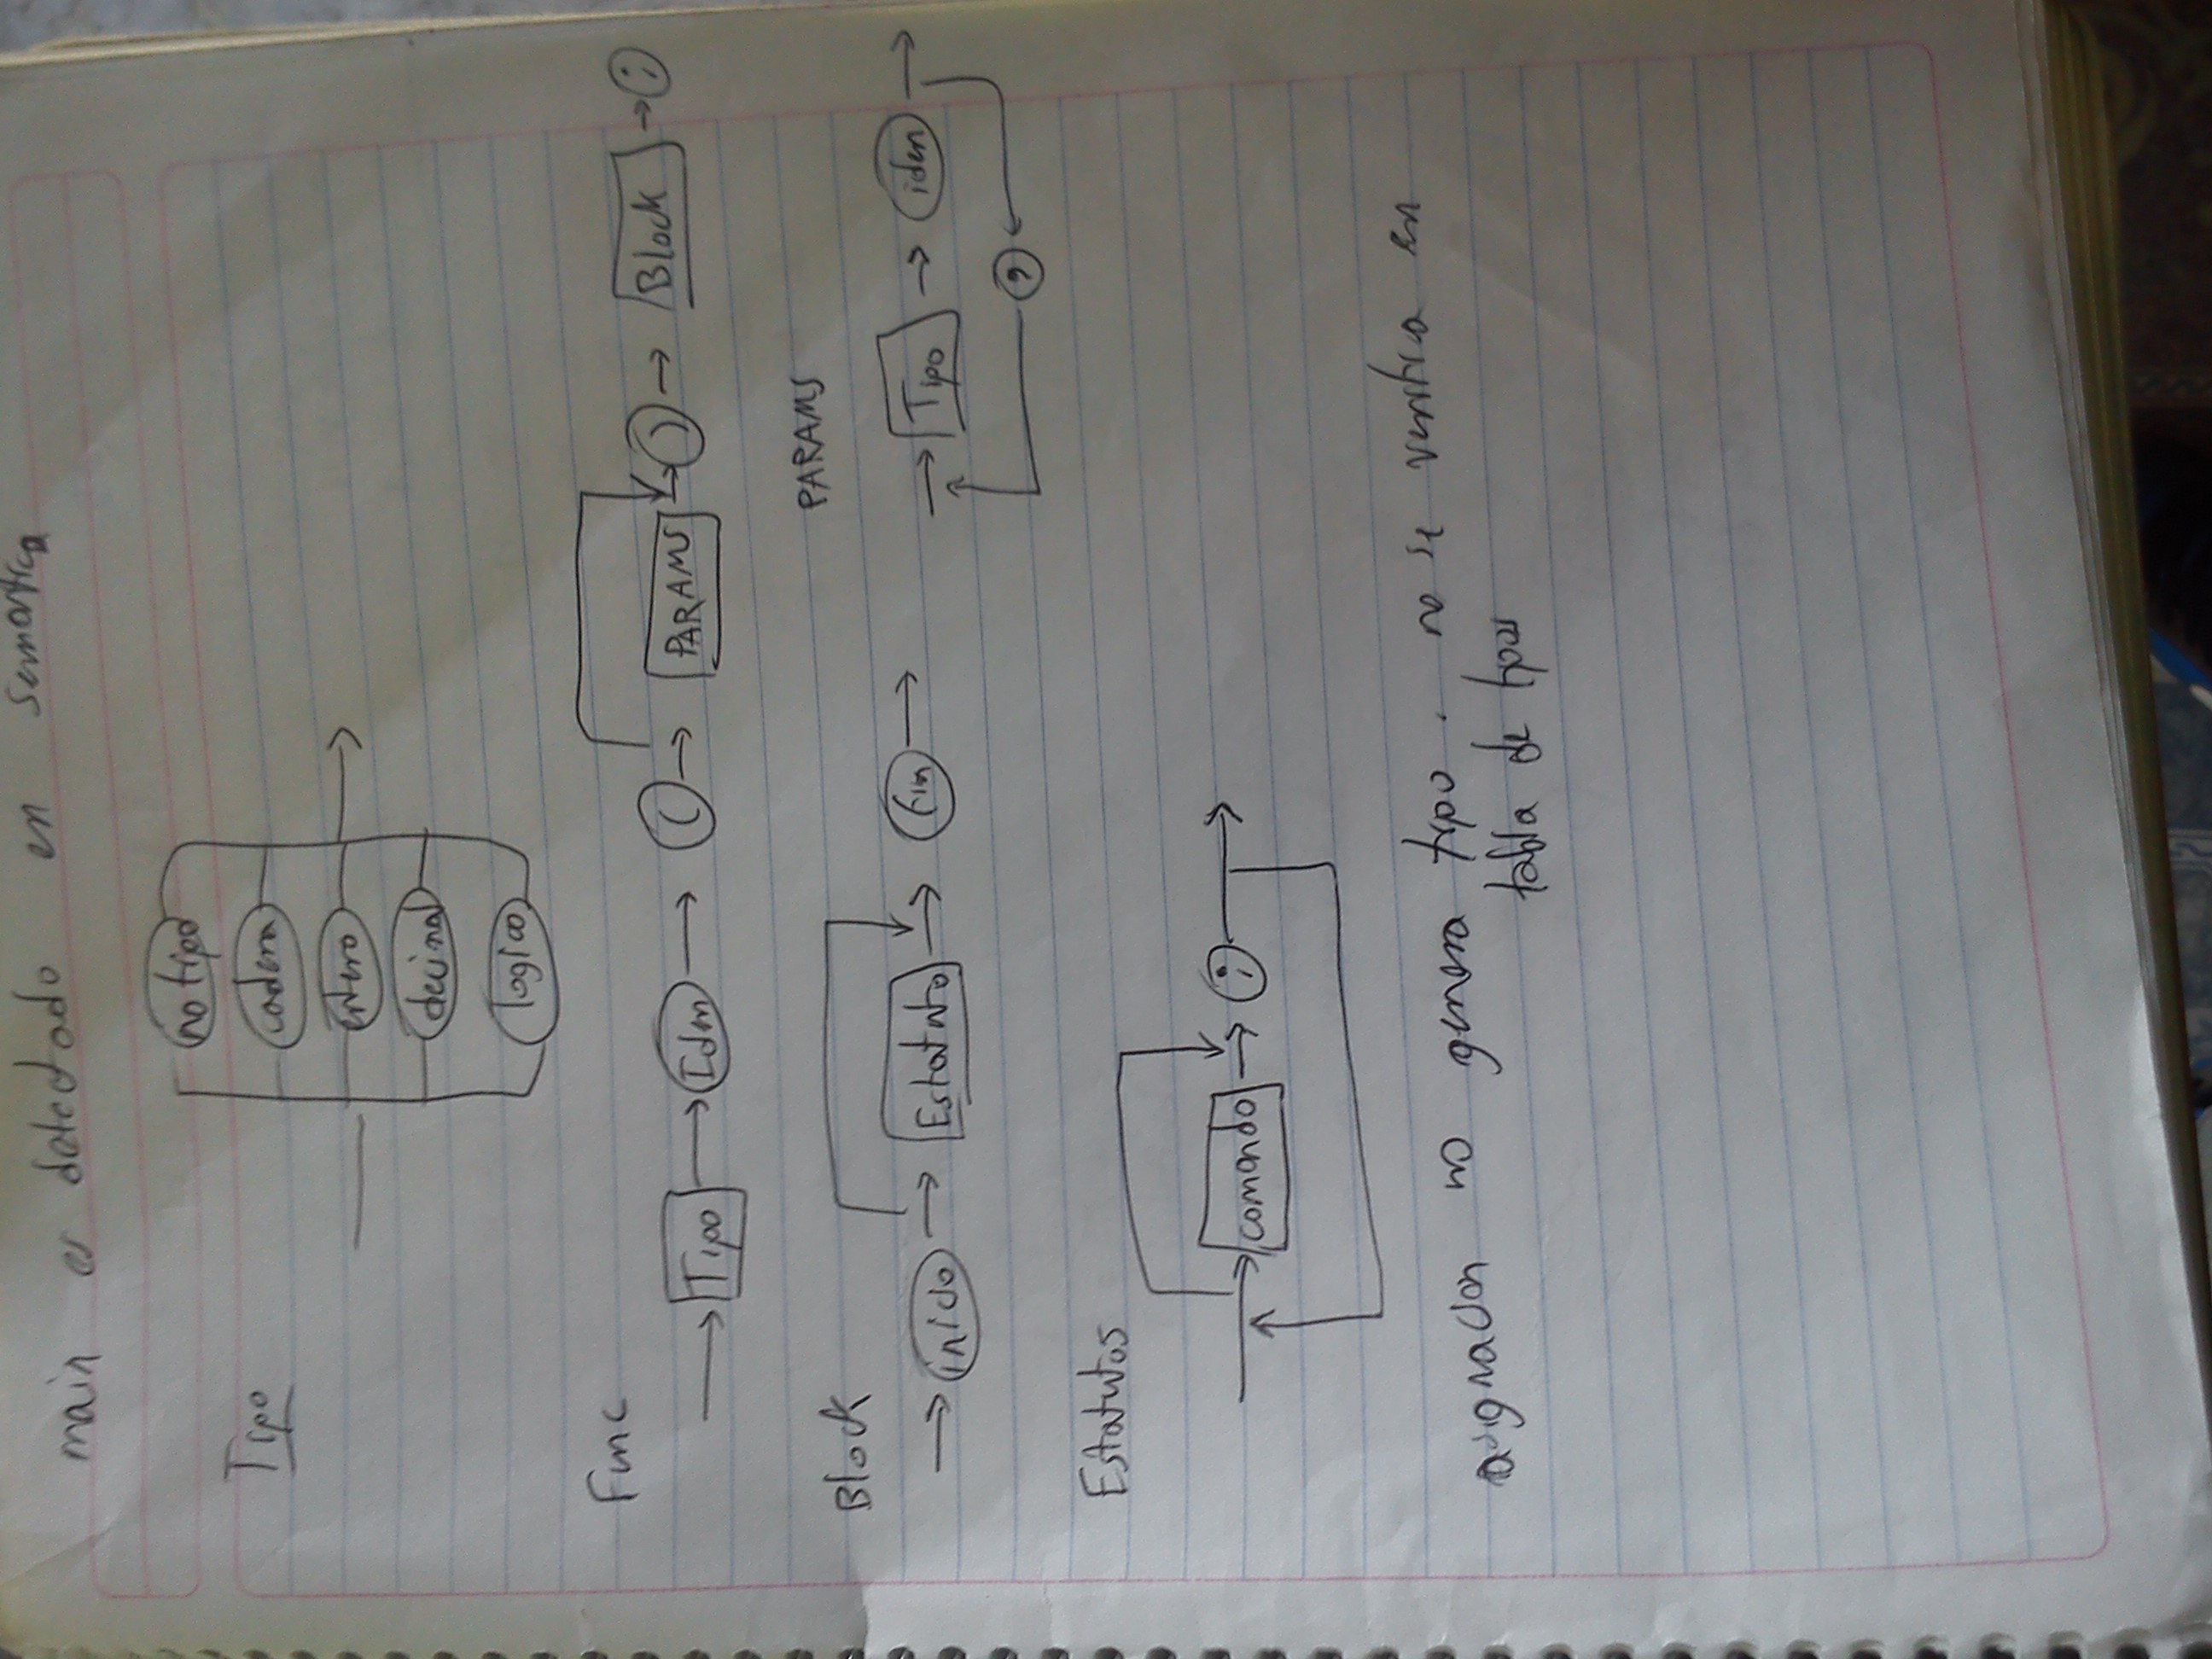 main es detectado en semantica
no tipo
Tipo
cadena
entero
decimal
logico
Func
Tipo Iden ( PARAMS ) Block ;
PARAMS
Block
inicio Estatuto fin
Tipo iden
,
Estatutos
comando ;
asignacion no genera tipo. no se verifica en
tabla de tipos